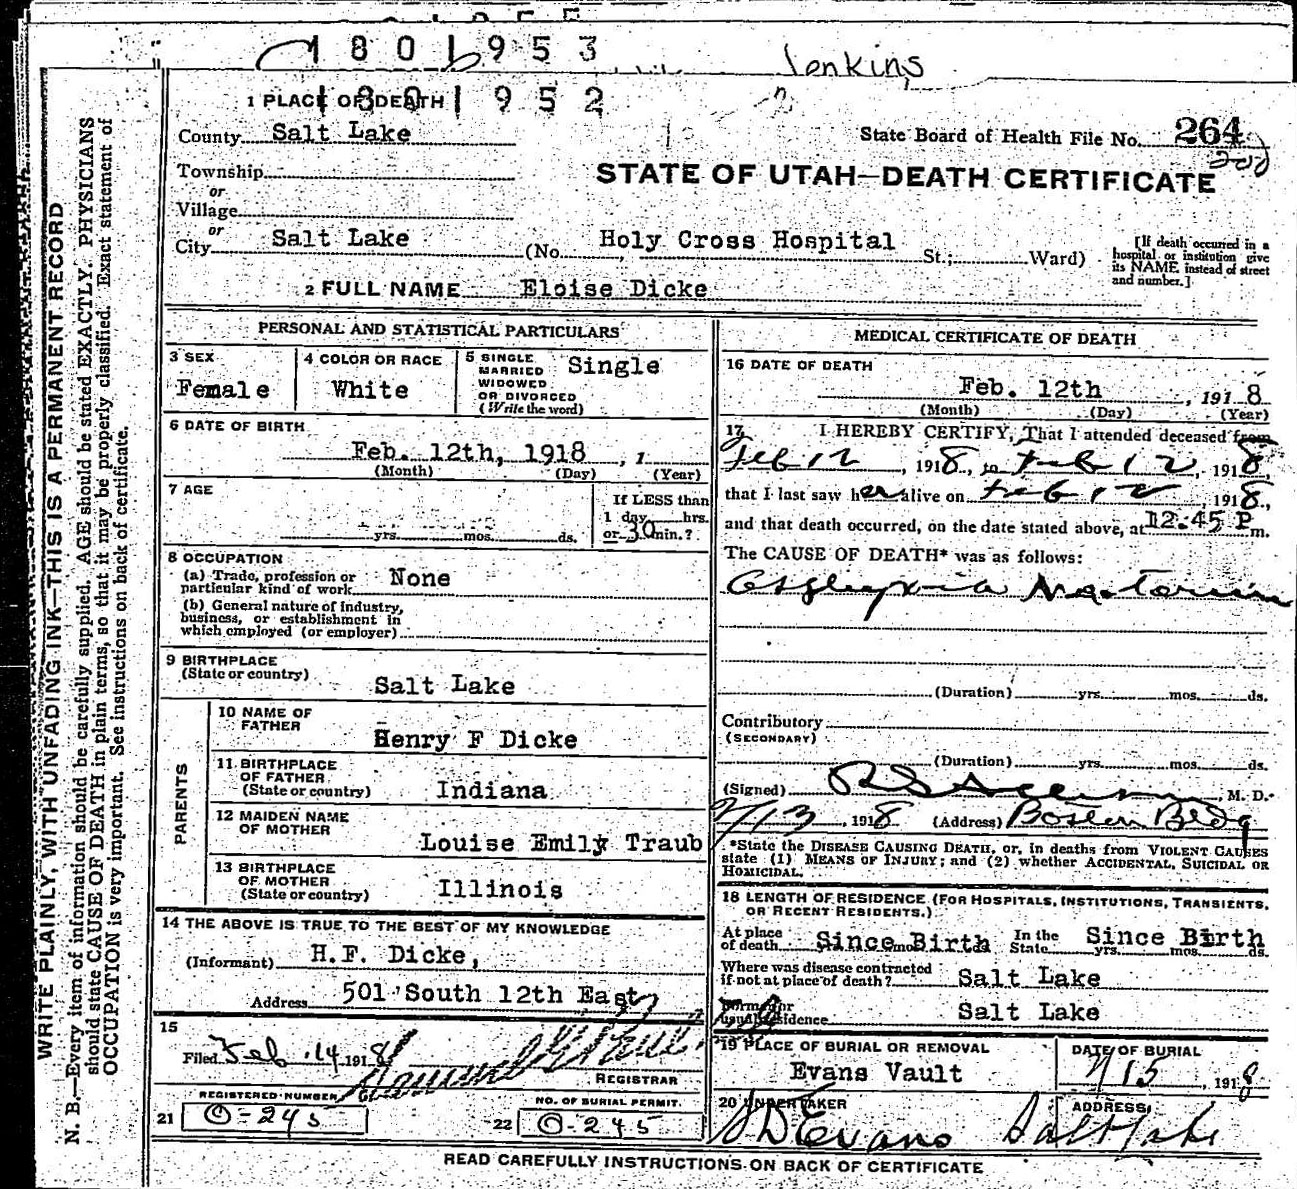 1801953
Jenkins
1 PLACE OF DEATH
1801952
County Salt Lake
State Board of Health File No. 264
200
Township
or
Village
or
STATE OF UTAH—DEATH CERTIFICATE
City Salt Lake (No. Holy Cross Hospital St.; Ward)
[If death occurred in a
hospital or institution give
its NAME instead of street
and number.]
2 FULL NAME Eloise Dicke
PERSONAL AND STATISTICAL PARTICULARS
3 SEX
Female
4 COLOR OR RACE
White
5 SINGLE
MARRIED
WIDOWED
OR DIVORCED
(Write the word)
Single
6 DATE OF BIRTH
Feb. 12th, 1918 , 1
(Month) (Day) (Year)
7 AGE
yrs. mos. ds.
If LESS than
1 day hrs.
or 30 min.?
8 OCCUPATION
(a) Trade, profession or
particular kind of work None
(b) General nature of industry,
business, or establishment in
which employed (or employer)
9 BIRTHPLACE
(State or country)
Salt Lake
PARENTS
10 NAME OF
FATHER
Henry F Dicke
11 BIRTHPLACE
OF FATHER
(State or country) Indiana
12 MAIDEN NAME
OF MOTHER
Louise Emily Traub
13 BIRTHPLACE
OF MOTHER
(State or country) Illinois
14 THE ABOVE IS TRUE TO THE BEST OF MY KNOWLEDGE
(Informant) H.F. Dicke,
Address 501 South 12th East
15
Filed Feb 14 1918
REGISTRAR
REGISTERED NUMBER
21 O-245
NO. OF BURIAL PERMIT
22 O-245
MEDICAL CERTIFICATE OF DEATH
16 DATE OF DEATH
Feb. 12th , 1918
(Month) (Day) (Year)
17 I HEREBY CERTIFY, That I attended deceased from
Feb 12 , 1918, to Feb 12 , 1918,
that I last saw her alive on Feb 12 1918,
and that death occurred, on the date stated above, at 12.45 P m.
The CAUSE OF DEATH* was as follows:
(Duration) yrs. mos. ds.
Contributory
(SECONDARY)
(Duration) yrs. mos. ds.
(Signed) M. D.
2/13 , 1918 (Address) Boston Bldg
*State the DISEASE CAUSING DEATH, or, in deaths from VIOLENT CAUSES
state (1) MEANS OF INJURY; and (2) whether ACCIDENTAL, SUICIDAL OR
HOMICIDAL.
18 LENGTH OF RESIDENCE (FOR HOSPITALS, INSTITUTIONS, TRANSIENTS,
OR RECENT RESIDENTS.)
At place
of death Since Birth mos.
In the
State Since Birth yrs. mos. ds.
Where was disease contracted
if not at place of death? Salt Lake
Former or
usual residence Salt Lake
19 PLACE OF BURIAL OR REMOVAL
Evans Vault
DATE OF BURIAL
2/15 , 1918
20 UNDERTAKER
S D Evans
ADDRESS
Salt Lake
READ CAREFULLY INSTRUCTIONS ON BACK OF CERTIFICATE
WRITE PLAINLY, WITH UNFADING INK—THIS IS A PERMANENT RECORD
N. B.—Every item of information should be carefully supplied. AGE should be stated EXACTLY. PHYSICIANS
should state CAUSE OF DEATH in plain terms, so that it may be properly classified. Exact statement of
OCCUPATION is very important. See instructions on back of certificate.